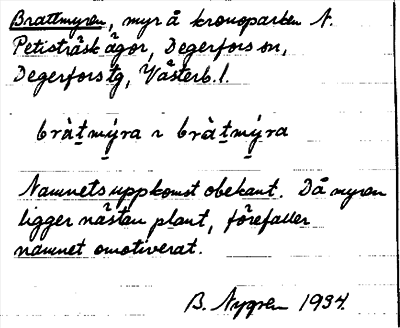 Brattmyren, myr å kronoparken N.
Petisträsk ägor, Degerfors sn,
Degerfors tg, Västerb. l.
bràt̲my̲ra ~ bràt̲mý̲ra
Namnets uppkomst obekant. Då myren
ligger nästan plant, förefaller
namnet omotiverat.
B. Nygren 1934.